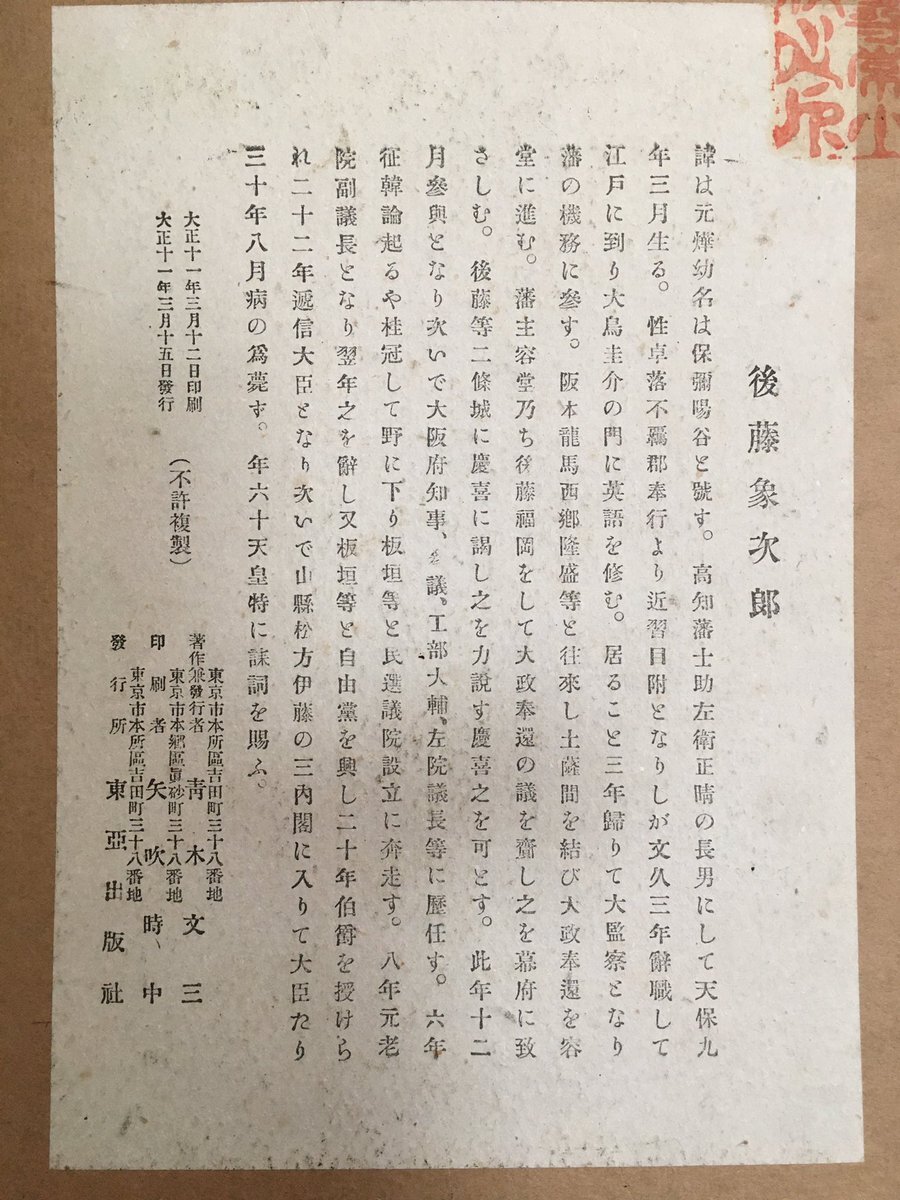 後藤象次郎
諱は元燁幼名は保彌陽谷と號す。高知藩士助左衛正晴の長男にして天保九
年三月生る。性卓落不羈郡奉行より近習目附となりしが文久三年辭職して
江戸に到り大鳥圭介の門に英語を修む。居ること三年歸りて大監察となり
藩の機務に參す。阪本龍馬西鄕隆盛等と往來し土薩間を結び大政奉還を容
堂に進む。藩主容堂乃ち後藤福岡をして大政奉還の議を齎し之を幕府に致
さしむ。後藤等二條城に慶喜に謁し之を力說す慶喜之を可とす。此年十二
月參與となり次いで大阪府知事、議、工部大輔、左院議長等に歷任す。六年
征韓論起るや桂冠して野に下り板垣等と民選議院設立に奔走す。八年元老
院副議長となり翌年之を辭し又板垣等と自由黨を興し二十年伯爵を授けら
れ二十二年遞信大臣となり次いで山縣松方伊藤の三內閣に入りて大臣たり
三十年八月病の爲薨ず。年六十天皇特に誄詞を賜ふ。
大正十一年三月十二日印刷
大正十一年三月十五日發行
（不許複製）
東京市本所區吉田町三十八番地
著作兼發行者 靑木文三
東京市本鄕區眞砂町三十八番地
印刷者 矢吹時中
東京市本所區吉田町三十八番地
發行所 東亞出版社